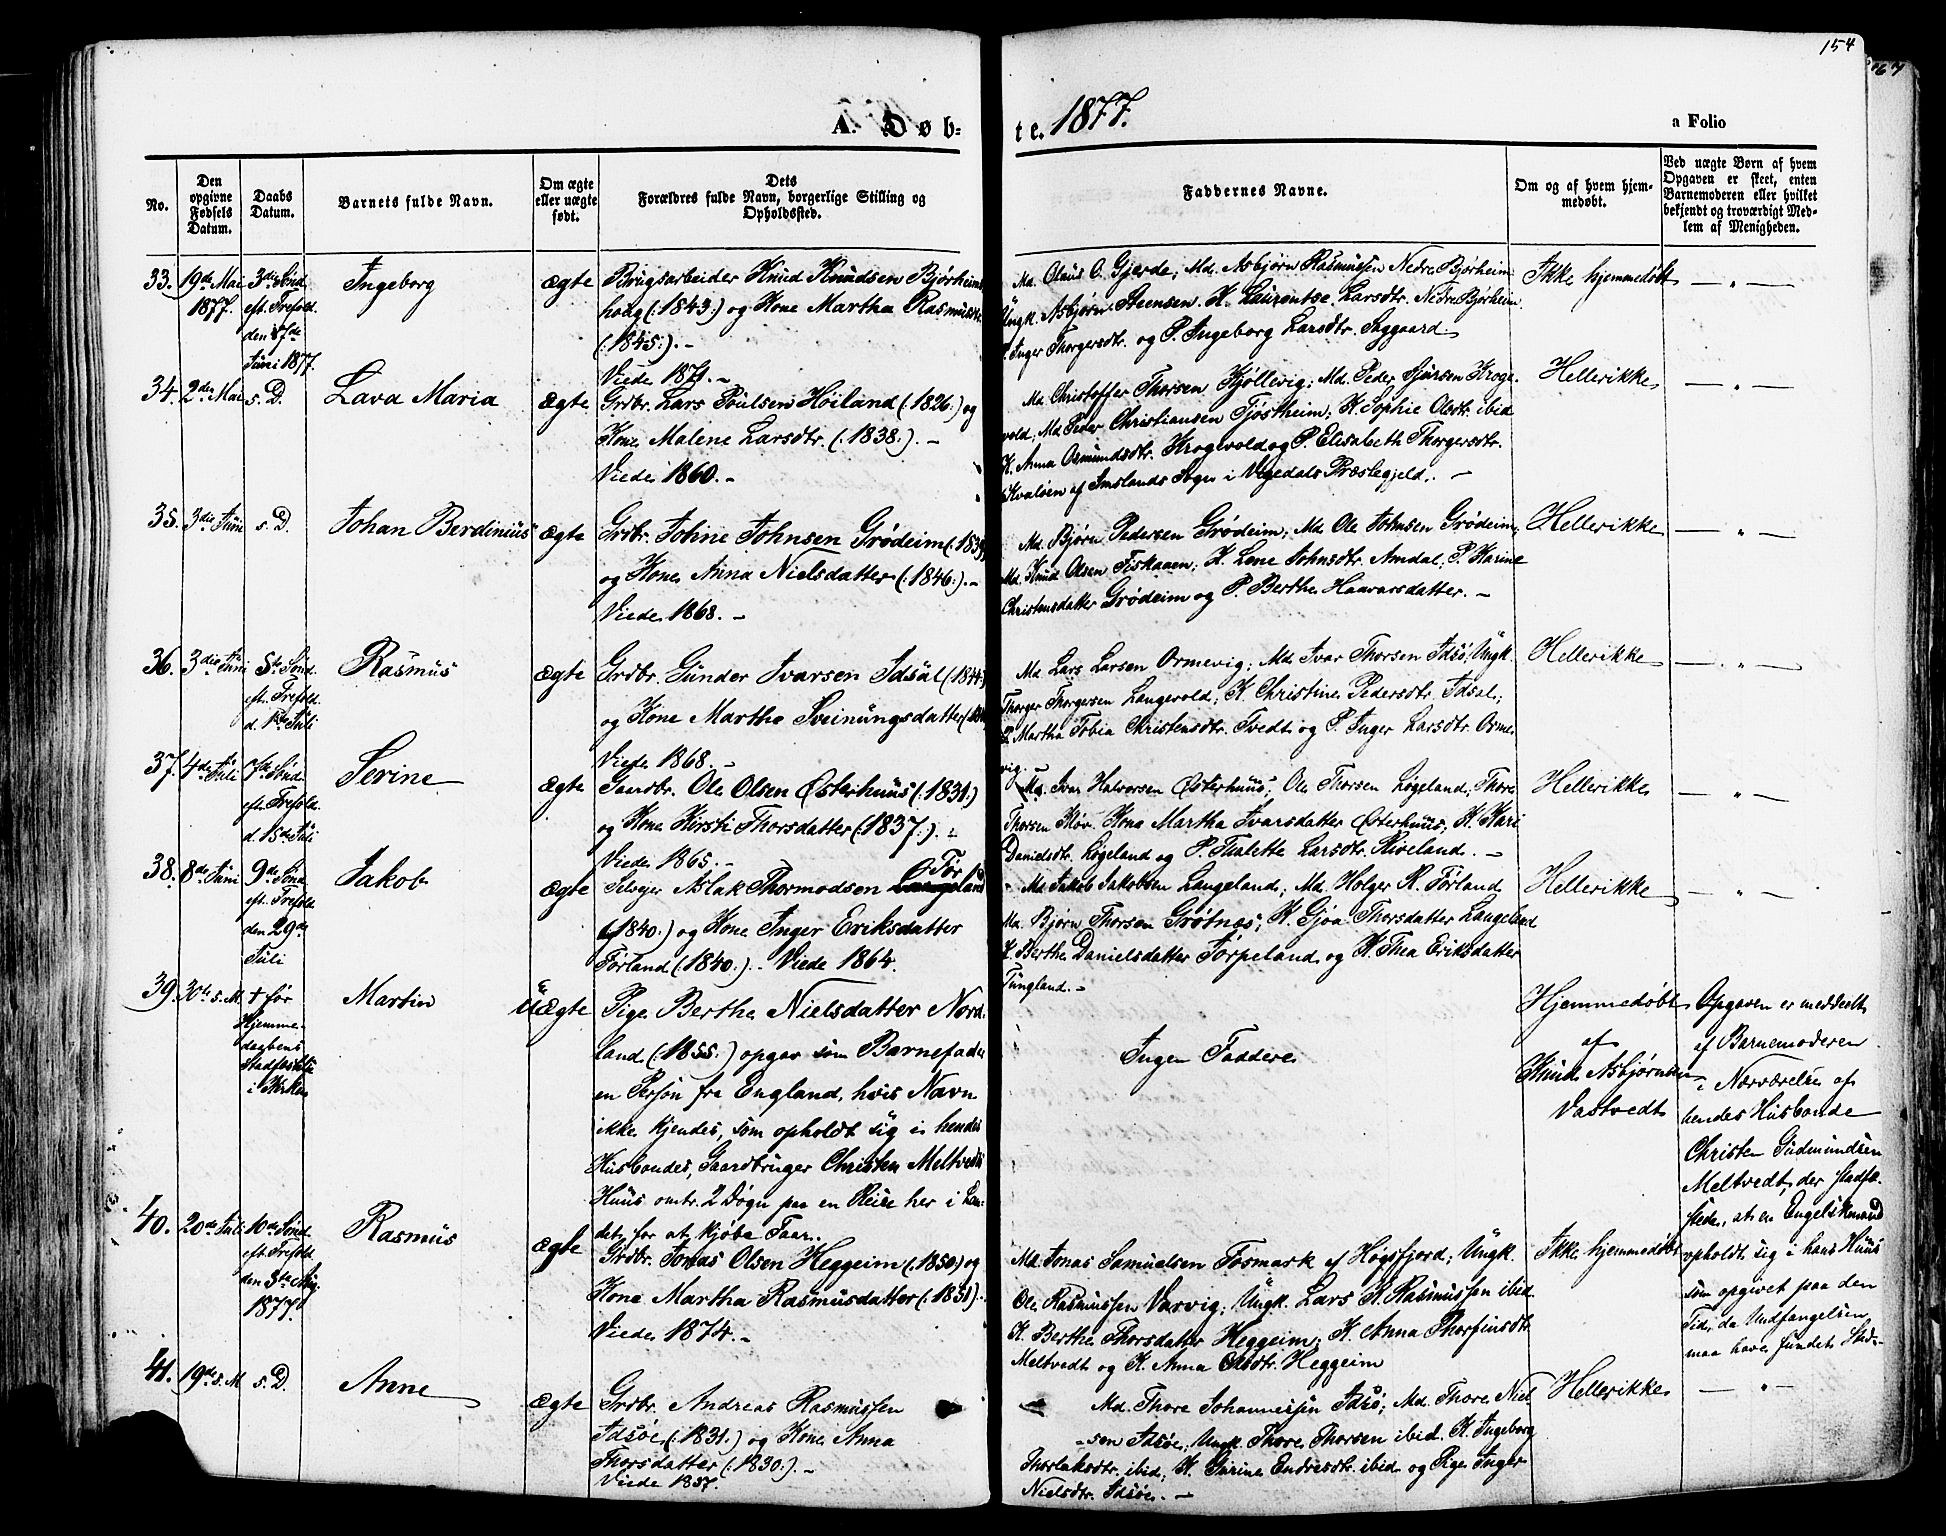 154
A. Døb-
te. 1877.
a Folio
No.
Den opgivne Fødsels Datum.
Daabs Datum.
Barnets fulde Navn.
Om ægte eller uægte født.
Dets Forældres fulde Navn, borgerlige Stilling og Opholdssted.
Faddernes Navne.
Om og af hvem hjemmedøbt.
Ved uægte Børn af hvem Opgaven er skeet, enten Barnemoderen eller hvilket bekjendt og troværdigt Medlem af Menigheden.
33. 19de Mai 1877. 3die Sønd. eft. Trefold. den 17de Juni 1877. Ingeborg ægte
Brugsarbeider Knud Knudsen Bjørheims
haag (:1843:) og Kone Martha Rasmusdtr.
(:1845:). –
Viede 1871. –
Md. Olaus O. Gjerde; Md. Asbjørn Rasmussen Nedre Bjørheim
Ungk. Asbjørn Steensen. K. Laurentse Larsdtr. Nedre Bjørheim
P. Inger Thorgersdtr. og P. Ingeborg Larsdtr. Saggaard.
Ikke hjemmedøbt — „ —
34. 2den Mai s. D. Lava Maria ægte
Grdbr. Lars Poulsen Høiland (:1826:) og
Kone Malene Larsdtr. (:1838:). –
Viede 1860. –
Md. Christoffer Thorsen Kjøllevig; Md. Peder Sjursen Kroge-
vold; Md. Peder Christiansen Tjøstheim; K. Sophie Olsdtr. ibid
K. Anna Osmundsdtr. Krogevold og P. Elisabeth Thorgersdtr.
Kvaløen af Imslands Sogn i Vigedals Præstegjeld. –
Hellerikke — „ —
35. 3die Juni s. D. Johan Berdinius ægte
Grdbr. Johne Johnsen Grødeim (:1839:)
og Kone Anna Nielsdatter (:1846:). –
Viede 1868. –
Md. Bjørn Pedersen Grødeim; Md. Ole Johnsen Grødeim;
Md. Knud Olsen Fiskaaen; K. Lene Johnsdtr. Amdal, P. Karine
Christensdatter Grødeim og P. Berthe Haavarsdatter. –
Hellerikke — „ —
36. 3die Juni 5te Sønd. eft. Trefold. d. 1ste Juli Rasmus ægte
Grdbr. Gunder Ivarsen Idsal (:1844:)
og Kone Martha Sveinungsdatter
Viede 1868. –
Md. Lars Larsen Ormevig; Md. Ivar Thorsen Idsø; Ungk.
Thorger Thorgersen Langevold; K. Christine Pedersdtr. Idsal;
P. Martha Tobia Christensdtr. Tvedt og P. Inger Larsdtr. Orme-
vig. –
Hellerikke — „ —
37. 4de Juli 7de Sønd. eft. Trefold. d. 15de Juli Serine ægte
Gaardbr. Ole Olsen Østerhuus (:1831:)
og Kone Kirsti Thorsdatter (:1837:). –
Viede 1865. –
Md. Ivar Halvorsen Østerhuus; Ole Thorsen Løgeland; Thore
Thorsen Kløv. Kona Martha Ivarsdatter Østerhuus; K. Kari
Danielsdtr. Løgeland og P. Thalette Larsdtr. Skiveland. –
Hellerikke — „ —
38. 8de Juni 9de Sønd. eft. Trefold. den 29de Juli Jakob ægte
Selveier Aslak Thormodsen Langeland
Før
(:1840:) og Kone Inger Eriksdatter
Førland (:1840:). Viede 1864.
Md. Jakob Jakobsen Langeland; Md. Holger K. Førland
Md. Bjørn Thorsen Grøtnes; K. Gjøa Thorsdatter Langeland
K. Berthe Danielsdatter Tørpeland og K. Thea Eriksdatter
Tungland. –
Hellerikke — „ —
39. 30te s. M. † før Hjemmedaabens Stadfæstelse i Kirken Martin Uægte
Pige Berthe Nielsdatter Nord-
land (:1855:) opgav som Barnefader
en Person fra England, hvis Navn
ikke kjendes, som opholdt sig i hendes
Husbondes, Gaardbruger Christen Meltvedts
Huus omtr. 2 Døgn paa en Reise her i Lan-
det, for at kjøbe Faar.
Ingen Faddere
Hjemmedøbt
af
Knud Asbjørnsen
Vastvedt
Opgaven er meddeelt
af Barnemoderen
i Nærværelse af
hendes Husbonde
Christen Gudmundsen
Meltvedt, der stadfæ-
stede, at en Engelskmand
opholdt sig i hans Huus
som opgivet paa den
Tid, da Undfangelsen
maa have fundet Sted.–
40. 20de Juli 10de Sønd. eft. Trefold. den 5te Aug. 1877. Rasmus ægte
Grdbr. Jonas Olsen Heggeim (:1850:) og
Kone Martha Rasmusdatter (:1851:).
Viede 1874. –
Md. Jonas Samuelsen Fosmark af Høgsfjord; Ungk.
Ole Rasmussen Varvig; Ungk. Lars K. Rasmussen ibid.
K. Berthe Thorsdatter Heggeim; K. Anna Thorfinsdtr.
Meltvedt og K. Anna Olsdtr. Heggeim
Ikke hjemmedøbt
41. 19de s. M s. D. Anne ægte
Grdbr. Andreas Rasmussen
Idsøe (:1831:) og Kone Anna
Thorsdatter (:1830:). –
Viede 1857.
Md. Thore Johannessen Idsø; Md. Thore Niel-
sen Idsøe; Ungk. Thore Thorsen ibid. K. Ingeborg
Thorlaksdtr. ibid; K. Surine Endresdtr. ibid og Pige Inger
Nielsdtr. Idsøe. –
Hellerikke — „ —